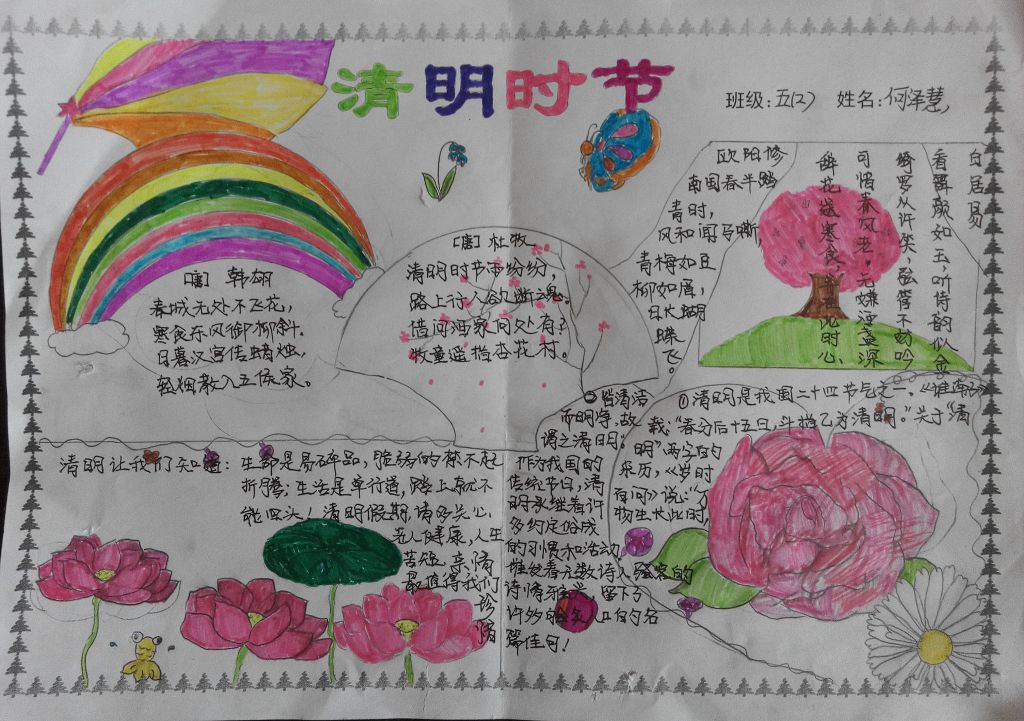 清明时节
班级:五(2) 姓名:何泽慧
[唐] 韩翃
春城无处不飞花,
寒食东风御柳斜.
日暮汉宫传蜡烛,
轻烟散入五侯家。
[唐] 杜牧
清明时节雨纷纷,
路上行人欲断魂。
借问酒家何处有?
牧童遥指杏花村。
欧阳修
南国春半踏
青时,
风和闻马嘶,
青梅如豆
柳如眉,
日长蝴
蝶飞。
白居易
看舞颜如玉,听诗韵似金
绮罗从许笑,弦管不妨吟
可惜春风老。无嫌酒盏深
辞花送寒食,此时心
①清明是我国二十四节气之一。《淮南子》
载:“春分后十五日,斗指乙为清明。”关于“清
明”两字的
来历,《岁时
百问》说:“万
物生长此时,
皆清洁
而明净.故
谓之清明。”
清明让我们知道:生命是易碎品,脆弱的禁不起
折腾;生活是单行道,踏上就不
能回头!清明假期,请多关心
老人健康,人生
苦短,亲情
最值得我们
珍
惜
作为我国的
传统节日,清
明承继着许
多约定俗成
的习惯和活动
激发着无数诗人骚客的
诗情雅兴,留下了
许多脍炙人口的名
篇佳句!